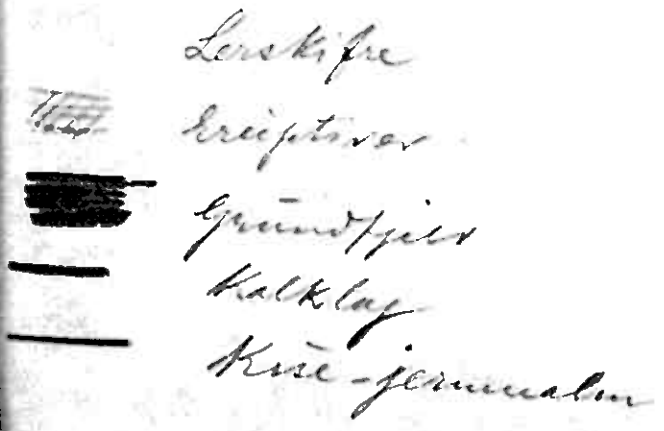 Lerskifre
Eruptiver
Grundfjeld
Kalklag
Kise-jernmalm